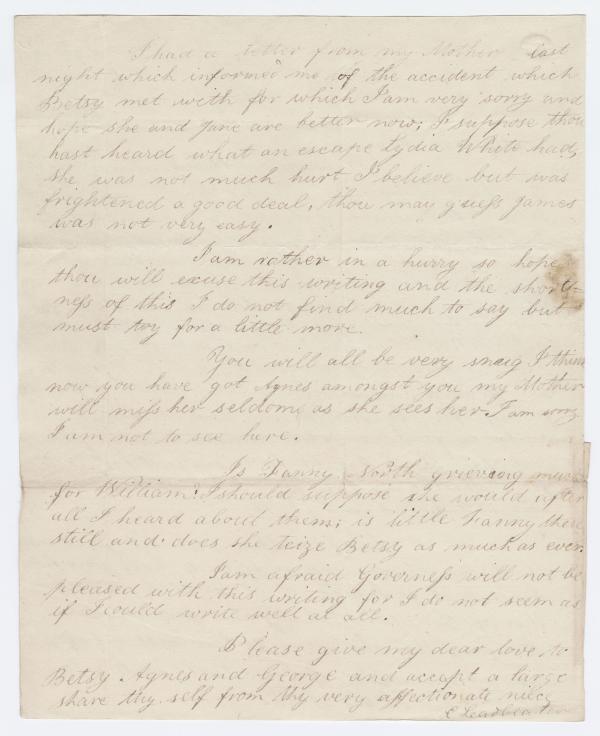 I had a letter from my Mother last
night which informed me of the accident which
Betsy met with for which I am very sorry and
hope she and Jane are better now; I suppose thou
hast heard what an escape Lydia White had,
she was not much hurt I believe but was
frightened a good deal, thou may guess James
was not very easy.
I am rather in a hurry so hope
thou will excuse this writing and the short-
ness of this I do not find much to say but
must try for a little more.
You will all be very snug I think
now you have got Agnes amongst you my Mother
will miss her seldom as she sees her I am sorry
I am not to see here.
Is Fanny North grieving much
for William? I should suppose she would after
all I heard about them; is little Fanny there
still and does she teize Betsy as much as ever.
I am afraid Governess will not be
pleased with this writing for I do not seem as
if I could write well at all.
Please give my dear love to
Betsy Agnes and George and accept a large
share thy self from thy very affectionate niece
E Leadbeater